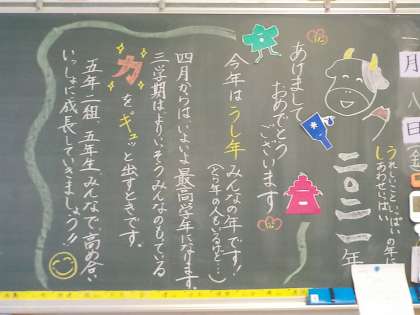 月八日
うれしいこといっぱいの年に
しあわせいっぱい
二〇二一年
あけまして
おめでとう
ございます
今年はうし年みんなの年です!
(とら年の人もいるけど…)
四月からは、いよいよ最高学年になります。
三学期は、よりいっそうみんなのもっている
力をギュッと出すときです。
五年二組、五年生、みんなで、高め合い
いっしょに成長していきましょう!!